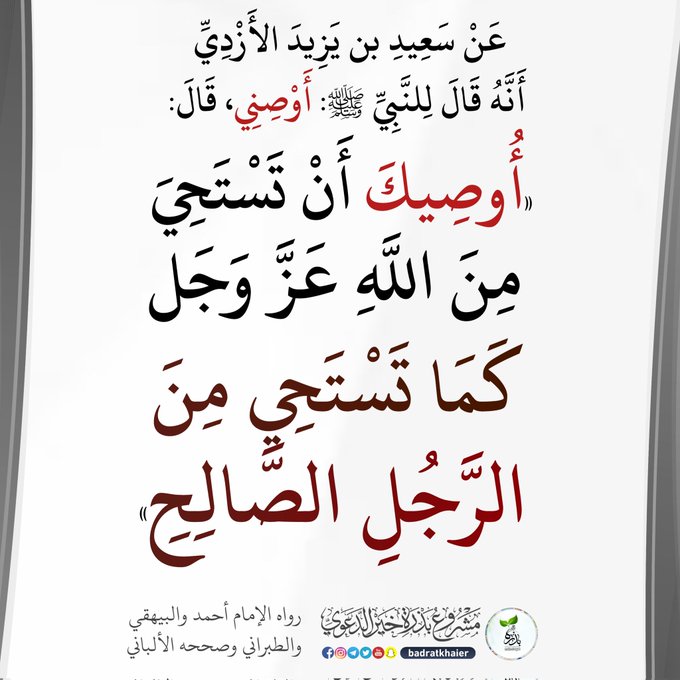 عَنْ سَعِيدِ بن يَزِيدَ الأَزْدِيِّ
أَنَّهُ قَالَ لِلنَّبِيِّ ﷺ: أَوْصِنِي، قَالَ:
«أُوصِيكَ أَنْ تَسْتَحِيَ
مِنَ اللَّهِ عَزَّ وَجَل
كَمَا تَسْتَحِي مِنَ
الرَّجُلِ الصَّالِحِ»
رواه الإمام أحمد والبيهقي
والطبراني وصححه الألباني
مشروع بذرة خير الدعوي
badratkhaier
بذرة